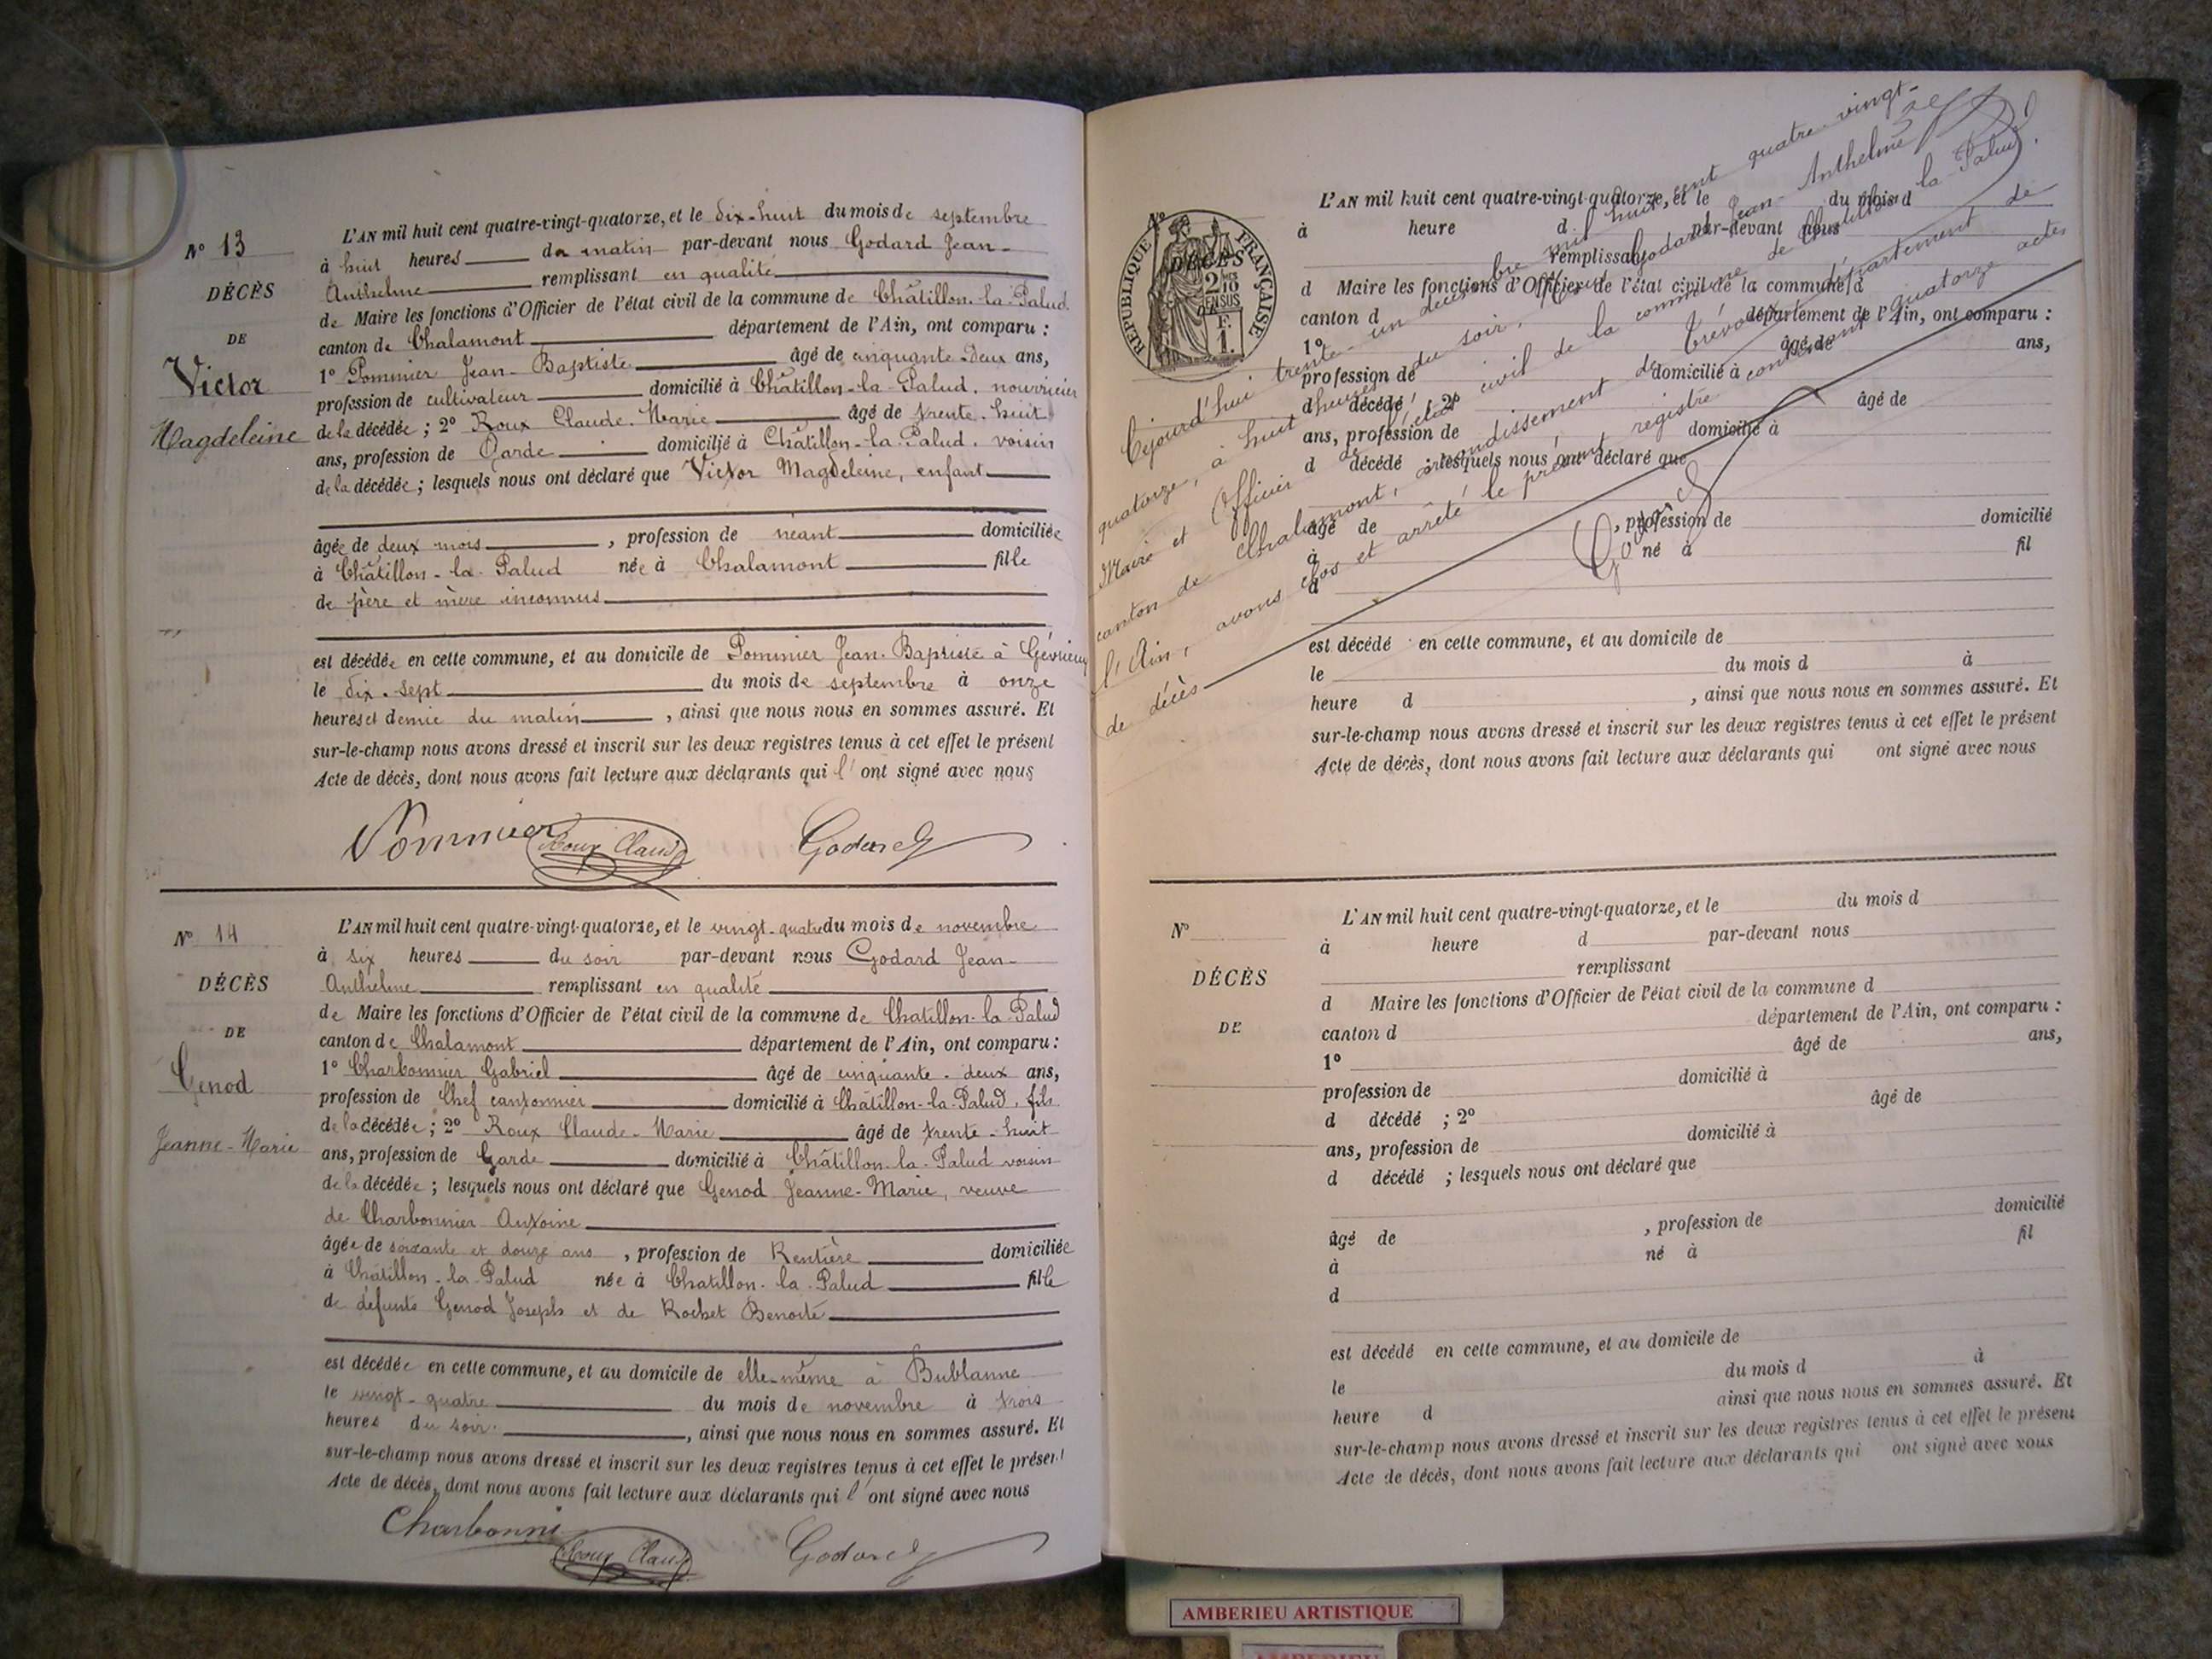 N° 13
DÉCÈS
DE
Victor
Magdeleine
L'AN mil huit cent quatre-vingt-quatorze, et le dix-huit du mois de septembre
à huit heures du matin par-devant nous Godard Jean-
Anthelme remplissant en qualité
de Maire les fonctions d'Officier de l'état civil de la commune de Châtillon-la-Palud
canton de Chalamont département de l'Ain, ont comparu :
1° Pommier Jean-Baptiste âgé de cinquante-deux ans,
profession de cultivateur domicilié à Châtillon-la-Palud, nourricier
de la décédée ; 2° Roux Claude-Marie âgé de trente-huit
ans, profession de Garde domicilié à Châtillon-la-Palud, voisin
de la décédée ; lesquels nous ont déclaré que Victor Magdeleine, enfant
âgée de deux mois, profession de néant domiciliée
à Châtillon-la-Palud née à Chalamont fille
de père et mère inconnus
est décédée en cette commune, et au domicile de Pommier Jean-Baptiste à Gévrieux
le dix-sept du mois de septembre à onze
heures et demie du matin, ainsi que nous nous en sommes assuré. Et
sur-le-champ nous avons dressé et inscrit sur les deux registres tenus à cet effet le présent
Acte de décès, dont nous avons fait lecture aux déclarants qui l'ont signé avec nous
Pommier Roux Claude Godard
N° 14
DÉCÈS
DE
Genod
Jeanne-Marie
L'AN mil huit cent quatre-vingt-quatorze, et le vingt-quatre du mois de novembre
à six heures du soir par-devant nous Godard Jean-
Anthelme remplissant en qualité
de Maire les fonctions d'Officier de l'état civil de la commune de Chatillon-la-Palud
canton de Chalamont département de l'Ain, ont comparu :
1° Charbonnier Gabriel âgé de cinquante-deux ans,
profession de Chef cantonnier domicilié à Châtillon-la-Palud, fils
de la décédée ; 2° Roux Claude-Marie âgé de trente-huit
ans, profession de Garde domicilié à Châtillon-la-Palud voisin
de la décédée ; lesquels nous ont déclaré que Genod Jeanne-Marie, veuve
de Charbonnier Antoine
âgée de soixante et douze ans, profession de Rentière domiciliée
à Châtillon-la-Palud née à Chatillon-la-Palud fille
de défunts Genod Joseph et de Rochet Benoite
est décédée en cette commune, et au domicile de elle-même à Bublanne
le vingt-quatre du mois de novembre à trois
heures du soir, ainsi que nous nous en sommes assuré. Et
sur-le-champ nous avons dressé et inscrit sur les deux registres tenus à cet effet le présent
Acte de décès, dont nous avons fait lecture aux déclarants qui l'ont signé avec nous
Charbonnier Roux Claude Godard
N°
RÉPUBLIQUE FRANÇAISE
DÉCÈS
2/10 MES
EN SUS
F.
1.
L'AN mil huit cent quatre-vingt-quatorze, et le du mois d
à heure d par-devant nous
remplissant
d Maire les fonctions d'Officier de l'état civil de la commune d
canton d département de l'Ain, ont comparu :
1° âgé de ans,
profession de domicilié à
d décédé ; 2° âgé de
ans, profession de domicilié à
d décédé ; lesquels nous ont déclaré que
âgé de , profession de domicilié
à né à fil
d
est décédé en cette commune, et au domicile de
le du mois d à
heure d , ainsi que nous nous en sommes assuré. Et
sur-le-champ nous avons dressé et inscrit sur les deux registres tenus à cet effet le présent
Acte de décès, dont nous avons fait lecture aux déclarants qui ont signé avec nous
Cejourd'hui trente-un décembre mil huit cent quatre-vingt-
quatorze, à huit heures du soir, Nous Godard Jean-Anthelme
Maire et Officier de l'état civil de la commune de Chatillon-la-Palud,
canton de Chalamont, arrondissement de Trévoux, département de
l'Ain, avons clos et arrêté le présent registre contenant quatorze actes
de décès
Godard
N°
DÉCÈS
DE
L'AN mil huit cent quatre-vingt-quatorze, et le du mois d
à heure d par-devant nous
remplissant
d Maire les fonctions d'Officier de l'état civil de la commune d
canton d département de l'Ain, ont comparu :
1° âgé de ans,
profession de domicilié à
d décédé ; 2° âgé de
ans, profession de domicilié à
d décédé ; lesquels nous ont déclaré que
âgé de , profession de domicilié
à né à fil
d
est décédé en cette commune, et au domicile de
le du mois d à
heure d ainsi que nous nous en sommes assuré. Et
sur-le-champ nous avons dressé et inscrit sur les deux registres tenus à cet effet le présent
Acte de décès, dont nous avons fait lecture aux déclarants qui ont signé avec nous
AMBERIEU ARTISTIQUE
AMBERIEU